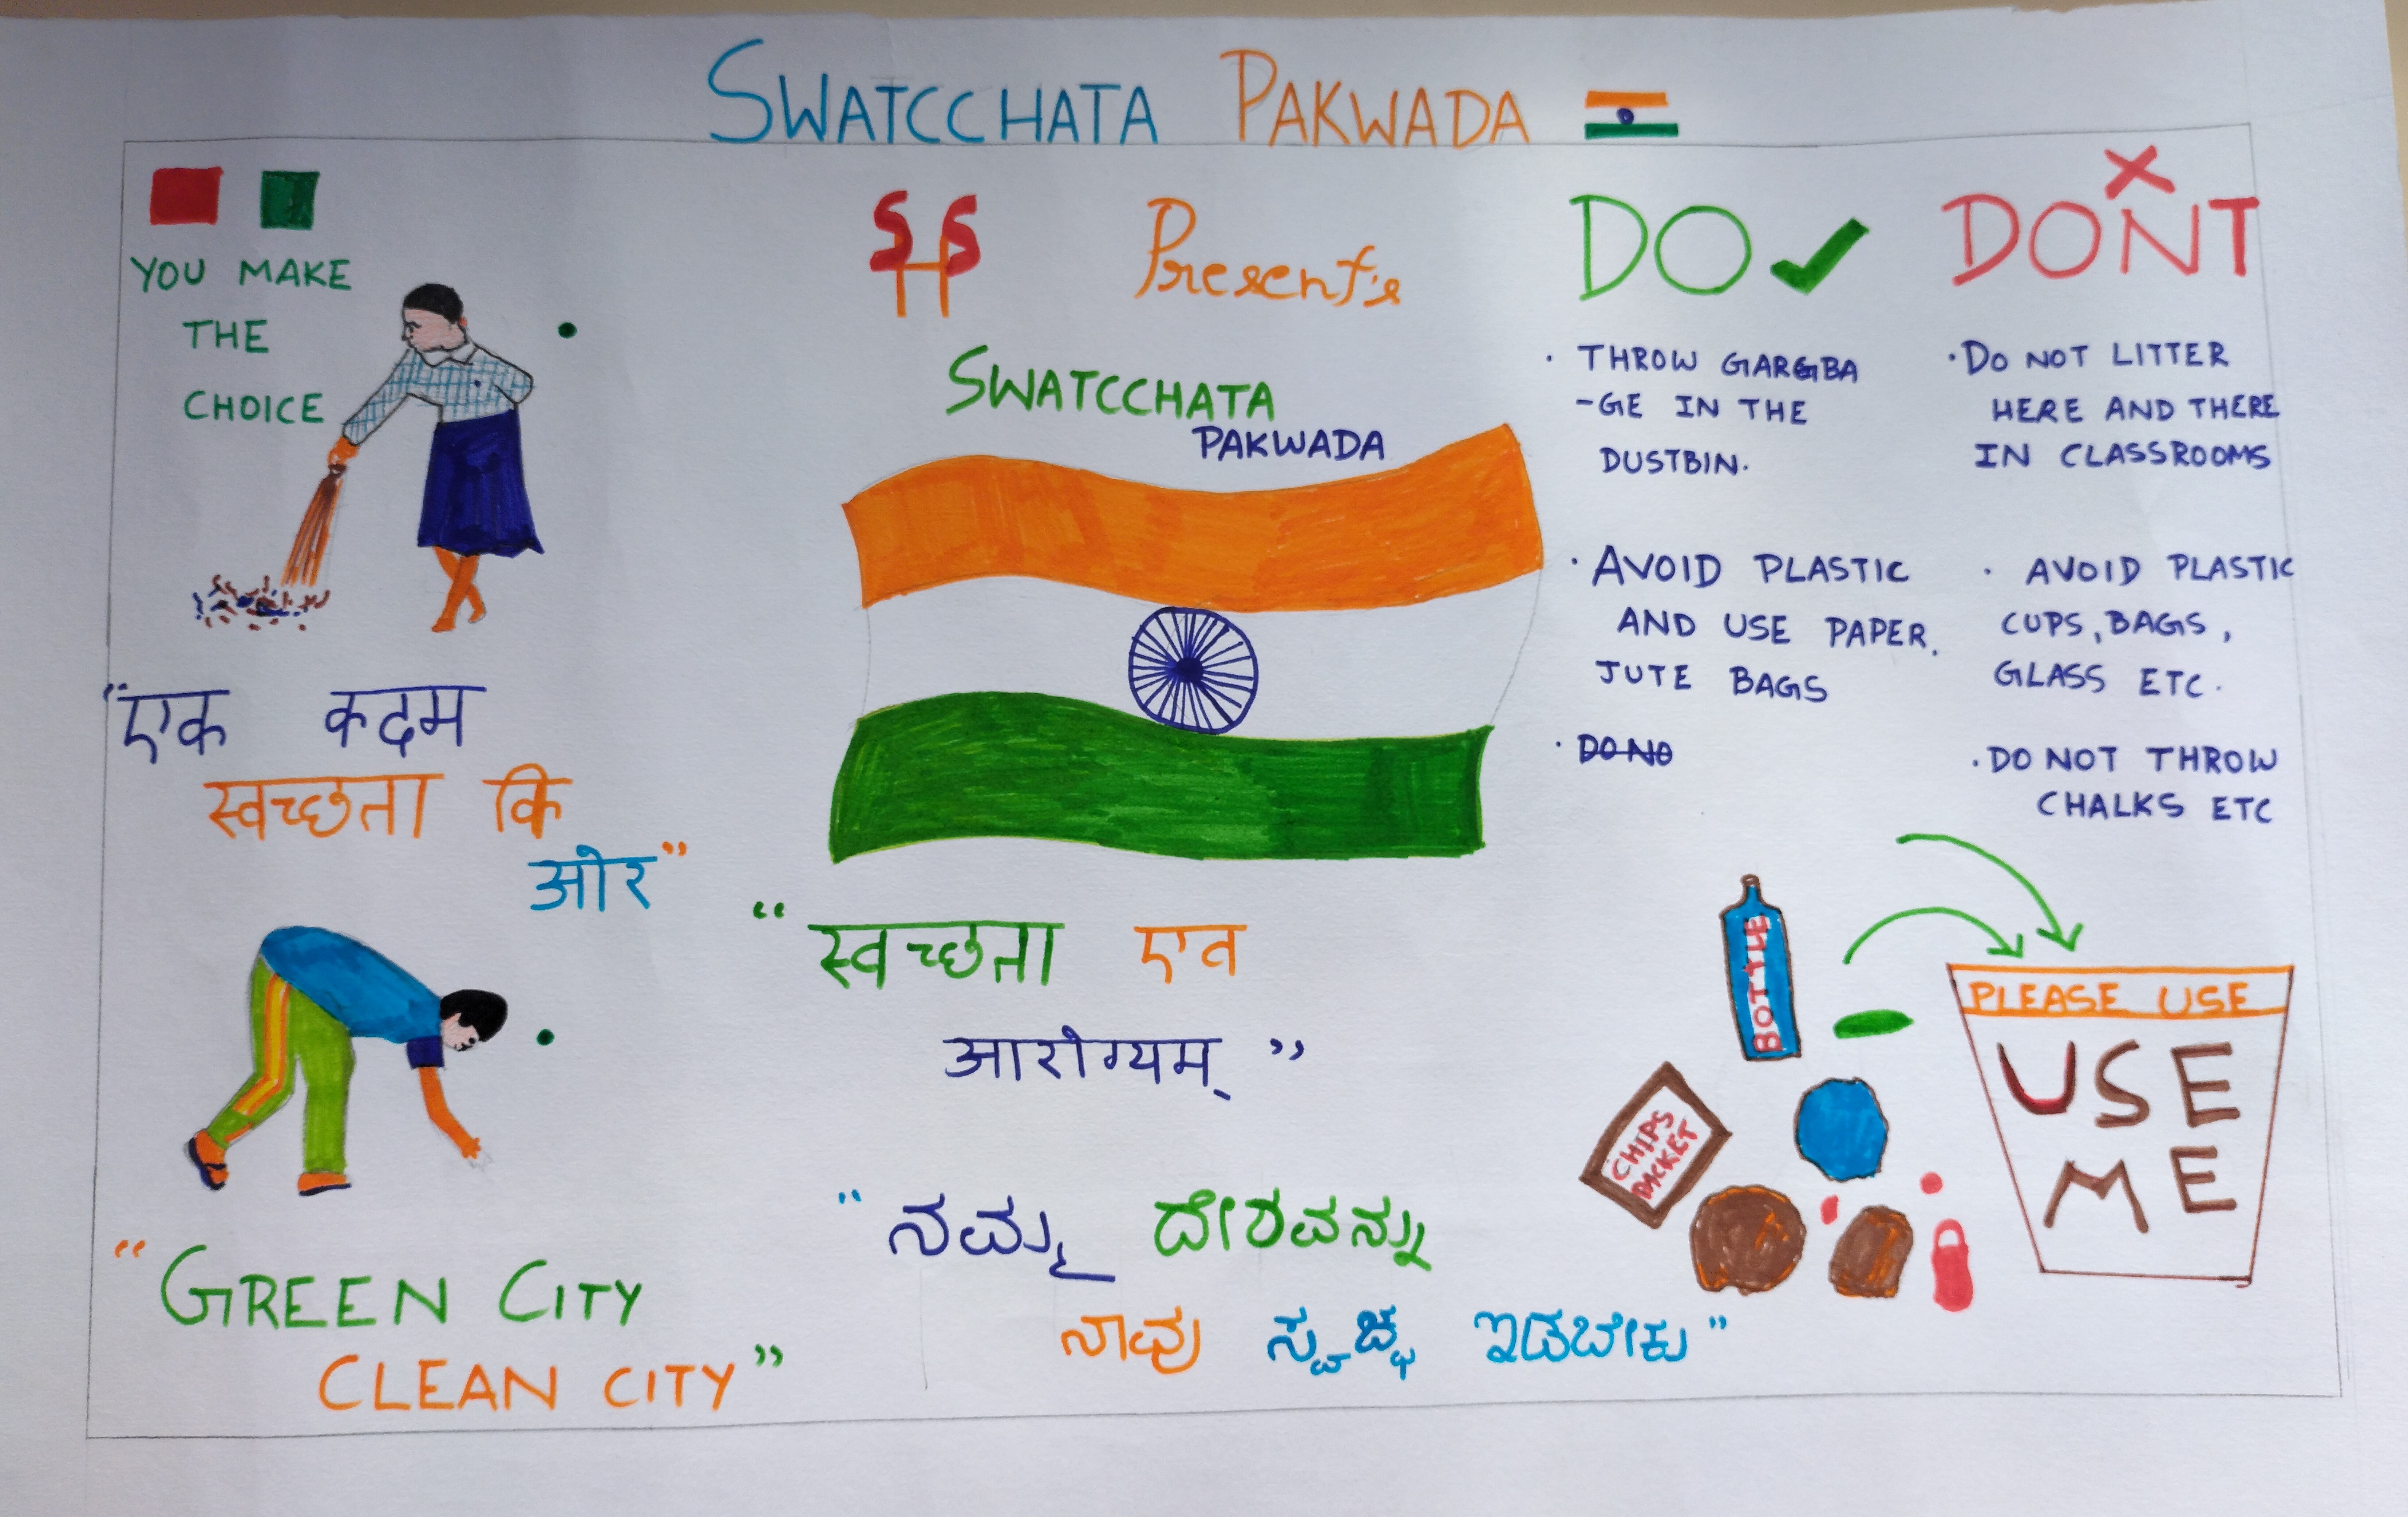 SWATCCHATA PAKWADA
YOU MAKE
THE
CHOICE
"एक कदम
स्वच्छता कि
ओर"
"GREEN CITY
CLEAN CITY"
SHS Present's
SWATCCHATA
PAKWADA
"स्वच्छता एव
आरोग्यम्"
"ನಮ್ಮ ದೇಶವನ್ನು
ನಾವು ಸ್ವಚ್ಛ ಇಡಬೇಕು"
DO
THROW GARGBA
-GE IN THE
DUSTBIN.
AVOID PLASTIC
AND USE PAPER,
JUTE BAGS
DO NO
DONT
DO NOT LITTER
HERE AND THERE
IN CLASSROOMS
AVOID PLASTIC
CUPS, BAGS,
GLASS ETC.
DO NOT THROW
CHALKS ETC
BOTTLE
CHIPS
PACKET
PLEASE USE
USE
ME